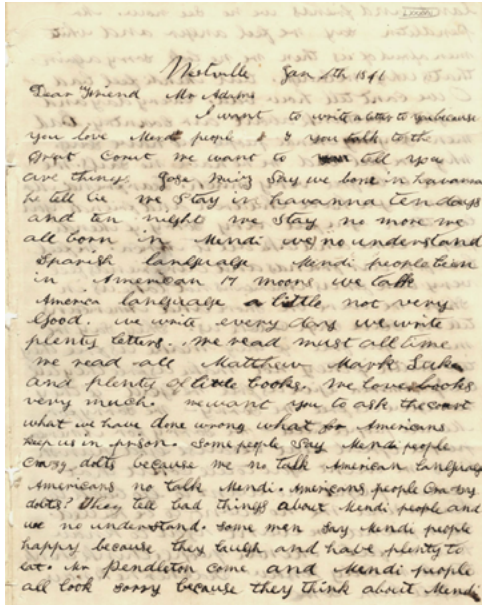 Westville Jan 4th 1841
Dear Friend Mr Adams
I want to write a letter to you because
you love Mendi people & you talk to the
Great Court we want to tell you
one things Jose Ruiz Say we born in havanna
he tell lie we stay in havanna ten days
and ten night we stay no more we
all born in Mendi we no understand
Spanish language Mendi people been
in American 17 moons we talk
America language a little not very
Good. we write every day we write
plenty letters. we read most all time
we read all Matthew Mark Luke
and plenty of little books. we love books
very much. we want you to ask the court
what we have done wrong what for Americans
keep us in prison. Some people Say Mendi people
Crazy dolts because we no talk American language
Americans no talk Mendi. Americans people Crazy
dolts? They tell bad things about Mendi people and
we no understand. Some men Say Mendi people
happy because they laugh and have plenty to
eat. Mr Pendleton come and Mendi people
all look sorry because they think about Mendi